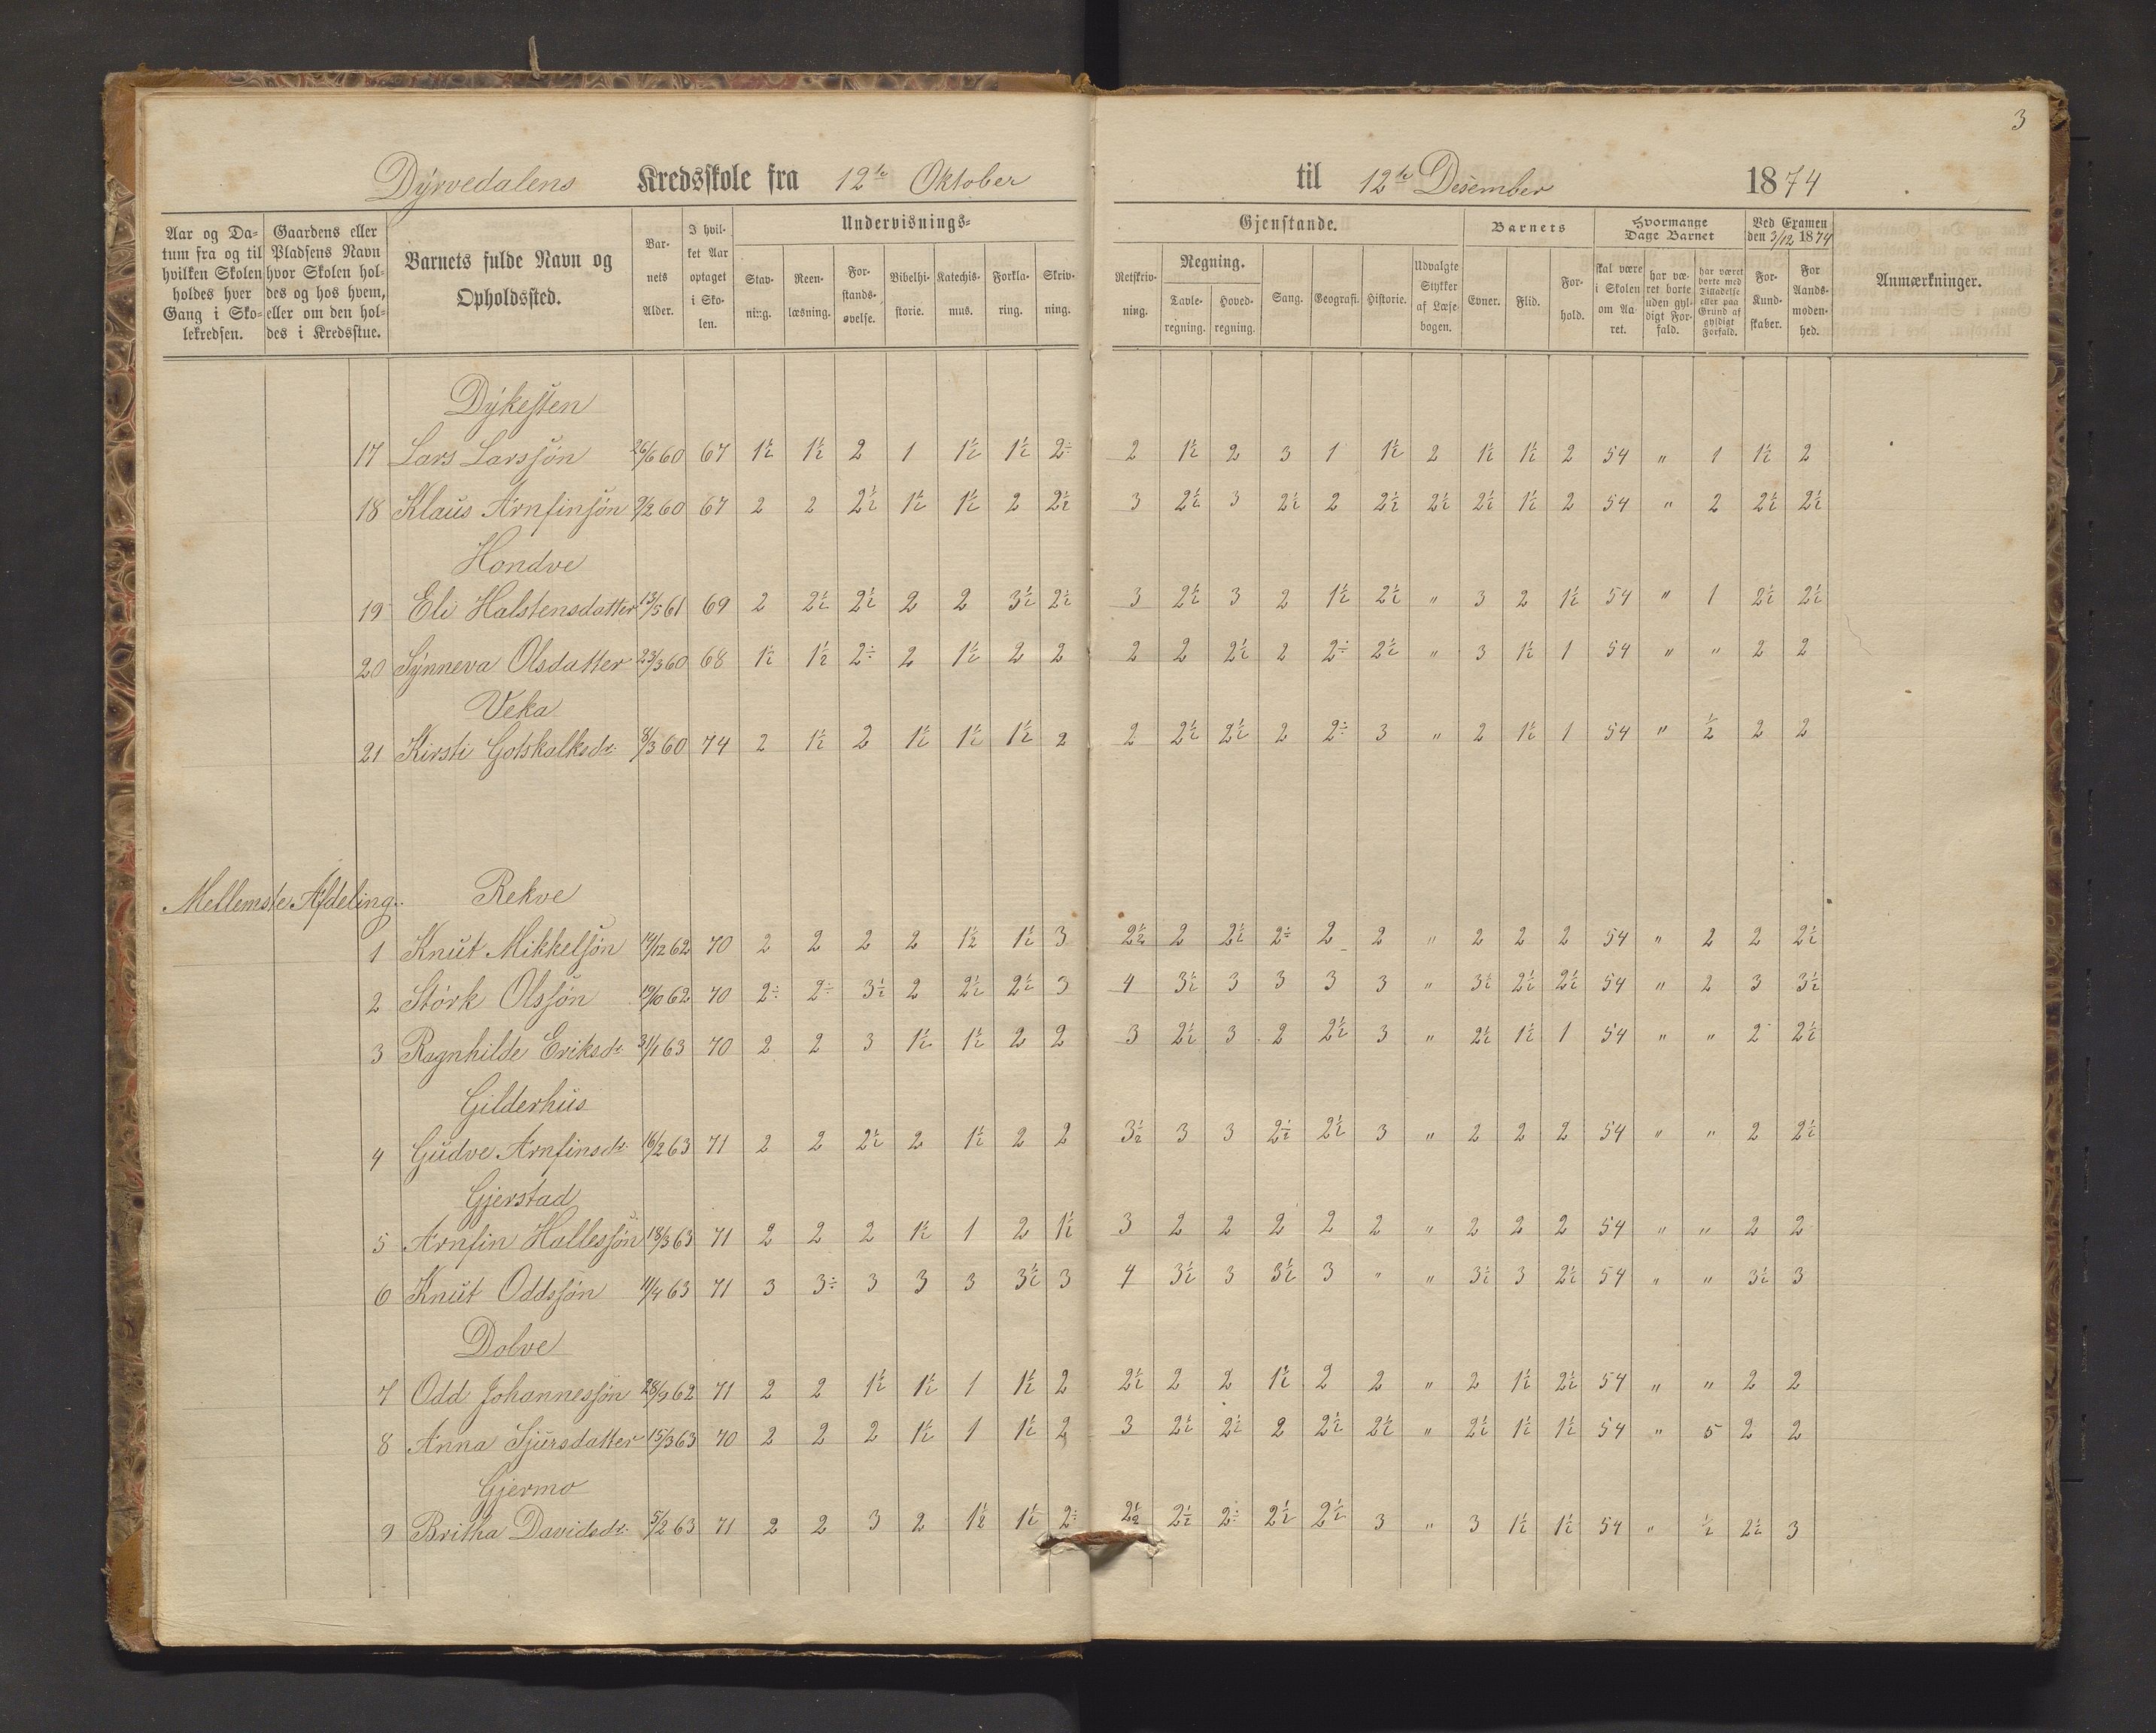 3
Dyrvedalens Kredsskole fra 12te Oktober til 12te Desember 1874
Aar og Da- tum fra og til hvilken Skolen holdes hver Gang i Sko- lekredsen.
Gaardens eller Pladsens Navn hvor Skolen hol- des og hos hvem, eller om den hol- des i Kredsstue.
Barnets fulde Navn og Opholdssted.
Bar- nets Alder.
I hvil- ket Aar optaget i Sko- len.
Undervisnings- Gjenstande.
Stav- ning.
Reen- læsning.
For- stands- øvelse.
Bibelhi- storie.
Katechis- mus.
Forkla- ring.
Skriv- ning.
Retskriv- ning.
Regning.
Tavle- regning.
Hoved- regning.
Sang.
Geografi.
Historie.
Udvalgte Stykker af Læse- bogen.
Barnets
Evner.
Flid.
For- hold.
Hvormange Dage Barnet
skal være i Skolen om Aa- ret.
har væ- ret borte uden gyl- digt For- fald.
har været borte med Tilladelse eller paa Grund af gyldigt Forfald.
Ved Examen den 3/12 1874
For- Kund- skaber.
For Aands- moden- hed.
Anmærkninger.
Dykesten
17 Lars Larssøn 26/6 60 67 1½ 1½ 2 1 1½ 1½ 2÷ 2 1½ 2 3 1 1½ 2 1½ 1½ 2 54 " 1 1½ 2
18 Klaus Arnfinsøn 9/2 60 67 2 2 2½ 1½ 1½ 2 2½ 3 2½ 3 2½ 2 2½ 2½ 2½ 1½ 2 54 " 2 2½ 2½
Hondve
19 Eli Halstensdatter 13/5 61 69 2 2½ 2½ 2 2 3½ 2½ 3 2½ 3 2 1½ 2½ " 3 2 1½ 54 " 1 2½ 2½
20 Synneva Olsdatter 23/3 60 68 1½ 1½ 2÷ 2 1½ 2 2 2 2 2½ 2 2÷ 2½ " 3 1½ 1 54 " " 2 2
Veka
21 Kirsti Gotskalksdr. 8/3 60 74 2 1½ 2 1½ 1½ 1½ 2 2 2½ 2½ 2 2÷ 3 " 2 1½ 1 54 " ½ 2 2
Mellemste Afdeling. Rekve
1 Knut Mikkelsøn 14/12 62 70 2 2 2 2 1½ 1½ 3 2½ 2 2½ 2÷ 2 2 " 2 2 2 54 " 2 2 2½
2 Størk Olssøn 19/10 62 70 2÷ 2÷ 3½ 2 2½ 2½ 3 4 3½ 3 3 3 3 " 3½ 2½ 2½ 54 " 2 3 3½
3 Ragnhilde Eriksdr. 31/1 63 70 2 2 3 1½ 1½ 2 2 3 2½ 3 2 2½ 3 " 2½ 1½ 1 54 " " 2 2½
Gilderhus
4 Gudve Arnfinsdr. 16/2 63 71 2 2 2½ 2 1½ 2 2 3½ 3 3 2½ 2½ 3 " 2 2 2 54 " " 2 2½
Gjerstad
5 Arnfin Hallessøn 18/3 63 71 2 2 2 1½ 1 2 1½ 3 2 2 2 2 2 " 2 2 2 54 " " 2 2
6 Knut Oddsøn 11/4 63 71 3 3÷ 3 3 3 3½ 3 4 3½ 3 3½ 3 " " 3½ 3 2½ 54 " " 3½ 3
Dolve
7 Odd Johannessøn 28/9 62 71 2 2 1½ 1½ 1 1½ 2 2½ 2 2 1½ 2 2 " 2 1½ 2½ 54 " " 2 2
8 Anna Sjursdatter 15/3 63 70 2 2 2 1½ 1 1½ 2 3 2½ 2½ 2 2½ 2½ " 2½ 1½ 1½ 54 " 5 2 2
Gjermo
9 Britha Davidsdr. 5/2 63 71 2 2 3 2 1½ 1½ 2÷ 2½ 2½ 2÷ 2½ 2½ 3 " 3 1½ 1½ 54 " ½ 2½ 3